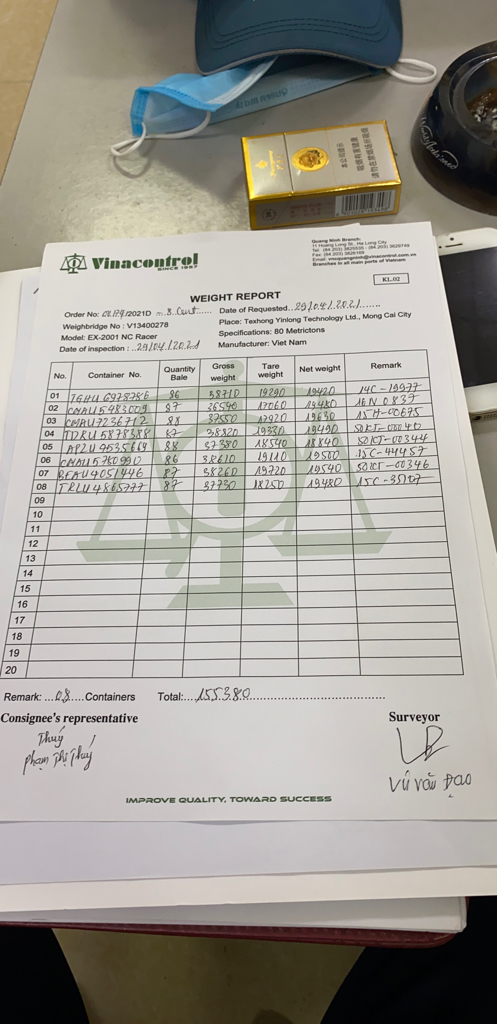 Vinacontrol
SINCE 1957
Quang Ninh Branch:
11 Hoang Long St., Ha Long City
Tel: (84.203) 3825535 - (84.203) 3829749
Fax: (84.203) 3826169
Email: vnequangninh@vinacontrol.com.vn
Branches in all main ports of Vietnam
KL.02
WEIGHT REPORT
Order No: /2021D Date of Requested 29/04/2021
Weighbridge No : V13400278 Place: Texhong Yinlong Technology Ltd., Mong Cai City
Model: EX-2001 NC Racer Specifications: 80 Metrictons
Date of inspection : 29/04/2021 Manufacturer: Viet Nam
No. Container No. Quantity Bale Gross weight Tare weight Net weight Remark
01 TGHU 6978786 86 38710 19290 19420 14C-19977
02 87 36540 17060 19480 16N 0837
03 CMAU7236712 88 37550 17920 19630 15H-00675
04 TDRU 5878388 87 38820 19330 19490
05 APZU 4535664 88 37380 18540 18840
06 CMAU5780990 86 38610 19110 19500 15C-44457
07 BEAU4051446 87 38260 19720 18540
08 TRLU4865777 87 37730 18250 19480 15C-35107
09
10
11
12
13
14
15
16
17
18
19
20
Remark: 08 Containers Total: 155380
Consignee's representative Surveyor
Thuý
Phạm Thị Thuý
Vũ Văn Đạo
IMPROVE QUALITY, TOWARD SUCCESS